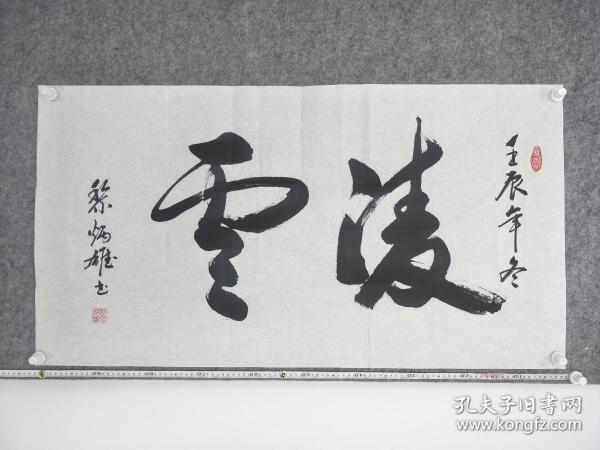 壬辰年冬
凌雲
黎炳雄书
孔夫子旧书网
www.kongfz.com